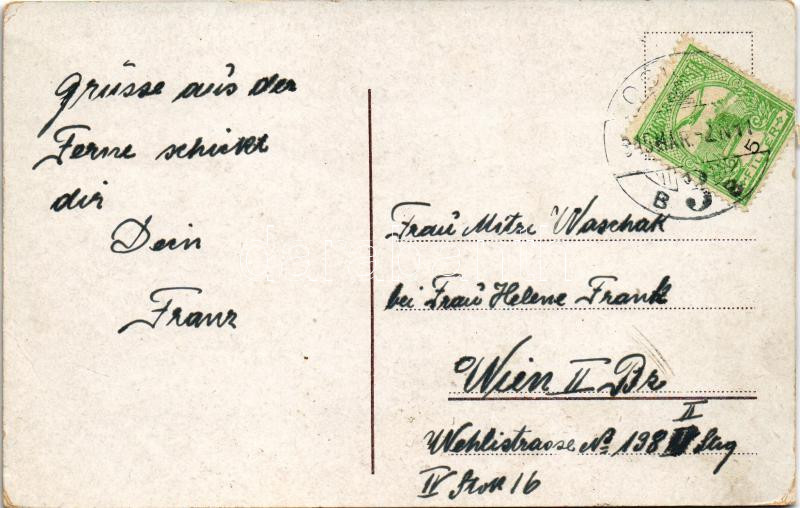 Grüsse aus der
Ferne schickt
dir
Dein
Franz
Frau Mitzi Waschak
bei Frau Helene Frank
Wien II Bz
II
Wehlistrasse No 198 Stg
IV Stok 16
MAR
B
5